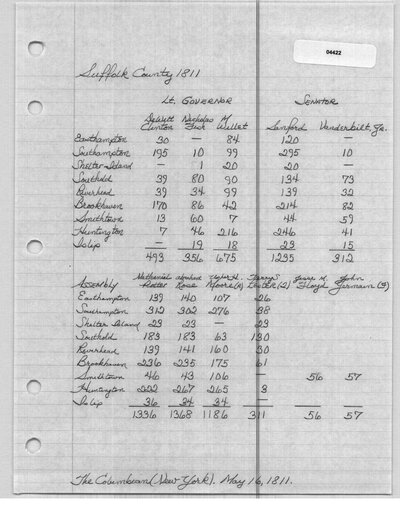 04422
Suffolk County 1811
Lt. Governor Senator
DeWitt Nicholas M
Clinton Fish Willet Sanford Vanderbilt Jr.
Easthampton 30 — 84 120
Southampton 195 10 99 295 10
Shelter Island — 1 20 20 —
Southold 39 80 90 134 73
Riverhead 39 34 99 139 32
Brookhaven 170 86 42 214 82
Smithtown 13 60 7 44 59
Huntington 7 66 216 246 41
Islip — 19 18 23 15
493 356 675 1235 312
Nathaniel Abraham Usher H. John
Assembly Potter Rose Moore(R) Floyd Germain (3)
Easthampton 139 140 107 26
Southampton 312 302 276 38
Shelter Island 23 23 — 23
Southold 183 183 63 130
Riverhead 139 141 160 30
Brookhaven 236 235 175 61
Smithtown 46 43 106 — 56 57
Huntington 222 267 265 3
Islip 36 34 34 —
1336 1368 1186 311 56 57
The Columbian (New York). May 16, 1811.